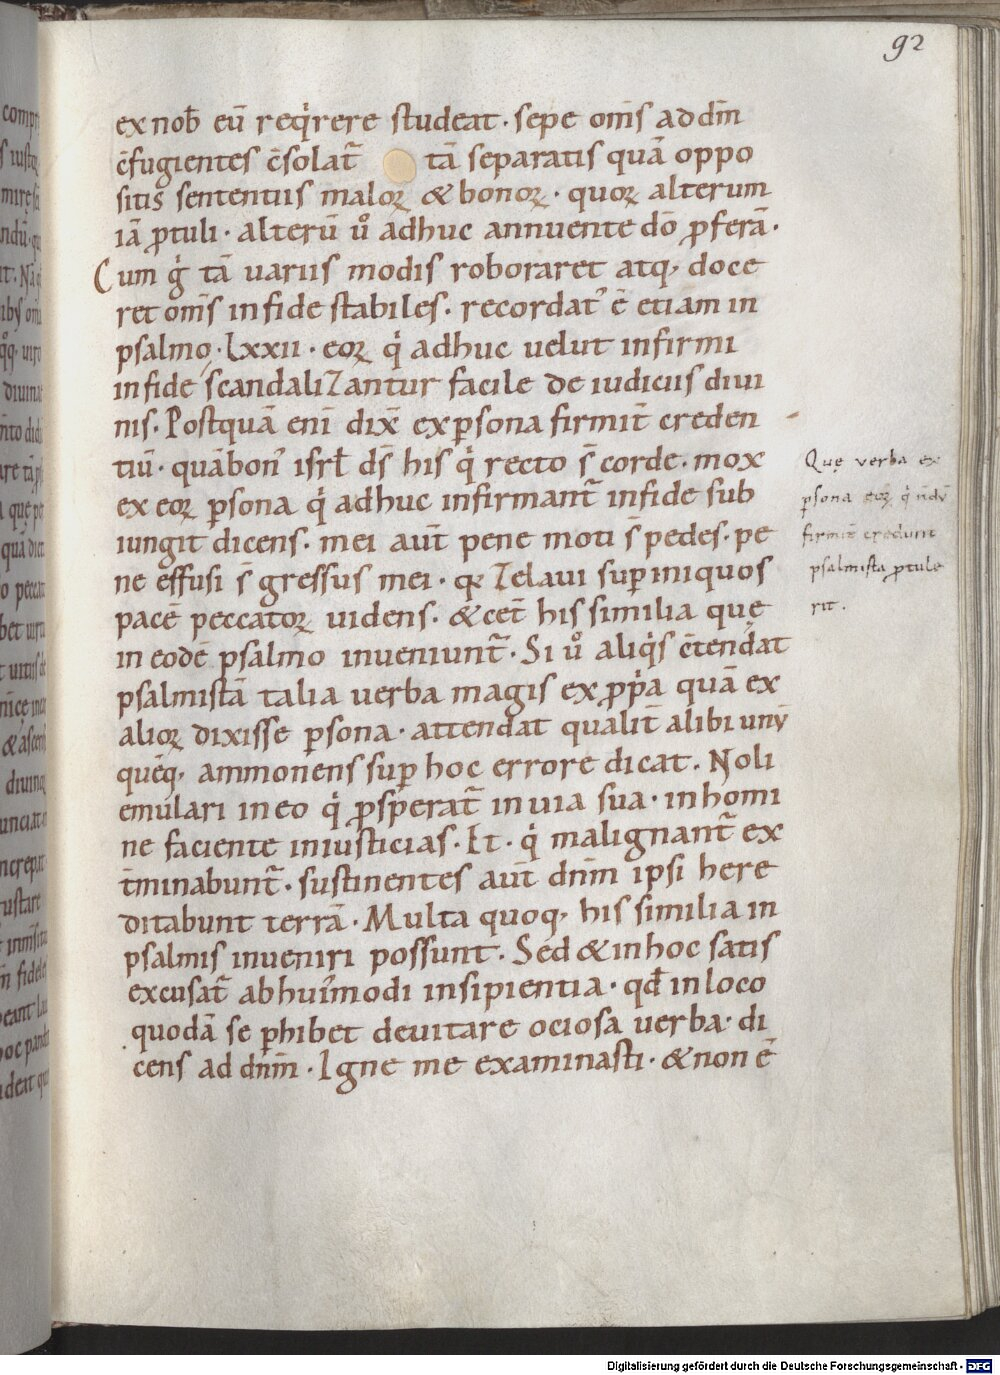 92
ex nob̅ eū req̇rere studeat · sepe om̄s ad dm̄
c̄fugientes c̄solat᷑ tā separatis quā oppo
sitis sententiis maloꝝ & bonoꝝ · quoꝝ alterum
iā ꝓtuli · alterū u̇o adhuc annuente dō ꝓferā ·
Cum g̊ tā uariis modis roboraret atq, doce
ret om̄s in fide stabiles · recordat᷑ ē etiam in
psalmo · Lxxii · eoꝝ q̇ adhuc uelut infirmi
in fide scandalizantur facile de iudiciis diui
nis · Postquā enī dix̄ ex ꝑsona firmit̄ creden
tiū · quābonꝰ isrł ds̄ his q̇ recto s̄ corde · mox
ex eoꝝ ꝑsona q̇ adhuc infirmant᷑ in fide sub
iungit dicens · mei aut̄ pene moti s̄ pedes · pe
ne effusi s̄ gressus mei · qꝛ Zelaui suꝑ iniquos
pacē peccatoꝝ uidens · & cet̄ his similia quę
in eodē psalmo inueniunt᷑ · Si u̇o aliq̇s c̄tendat
psalmistā talia uerba magis ex ꝓṗ̱a quā ex
alioꝝ dixisse ꝑsona · attendat qualit̄ alibi unū
quēq, ammonens suꝑ hoc errore dicat · Noli
emulari in eo q̇ ꝓsꝑerat᷑ in uia sua · in homi
ne faciente iniusticias · Et · q̇ malignant᷑ ex
t̄minabunt᷑ · sustinentes aut̄ dnm̄ ipsi here
ditabunt terrā · Multa quoq, his similia in
psalmis inueniri possunt · Sed & in hoc satis
excusat᷑ ab hui᷒modi insipientia · qd̄ in loco
quodā se ꝓhibet deuitare ociosa uerba · di
cens ad dnm̄ · Igne me examinasti · & non ē
Que verba ex
ꝑsona eoꝝ q̇ ndū
firmit̄ credunt
psalmista ꝓtule
rit .
Digitalisierung gefördert durch die Deutsche Forschungsgemeinschaft - DFG